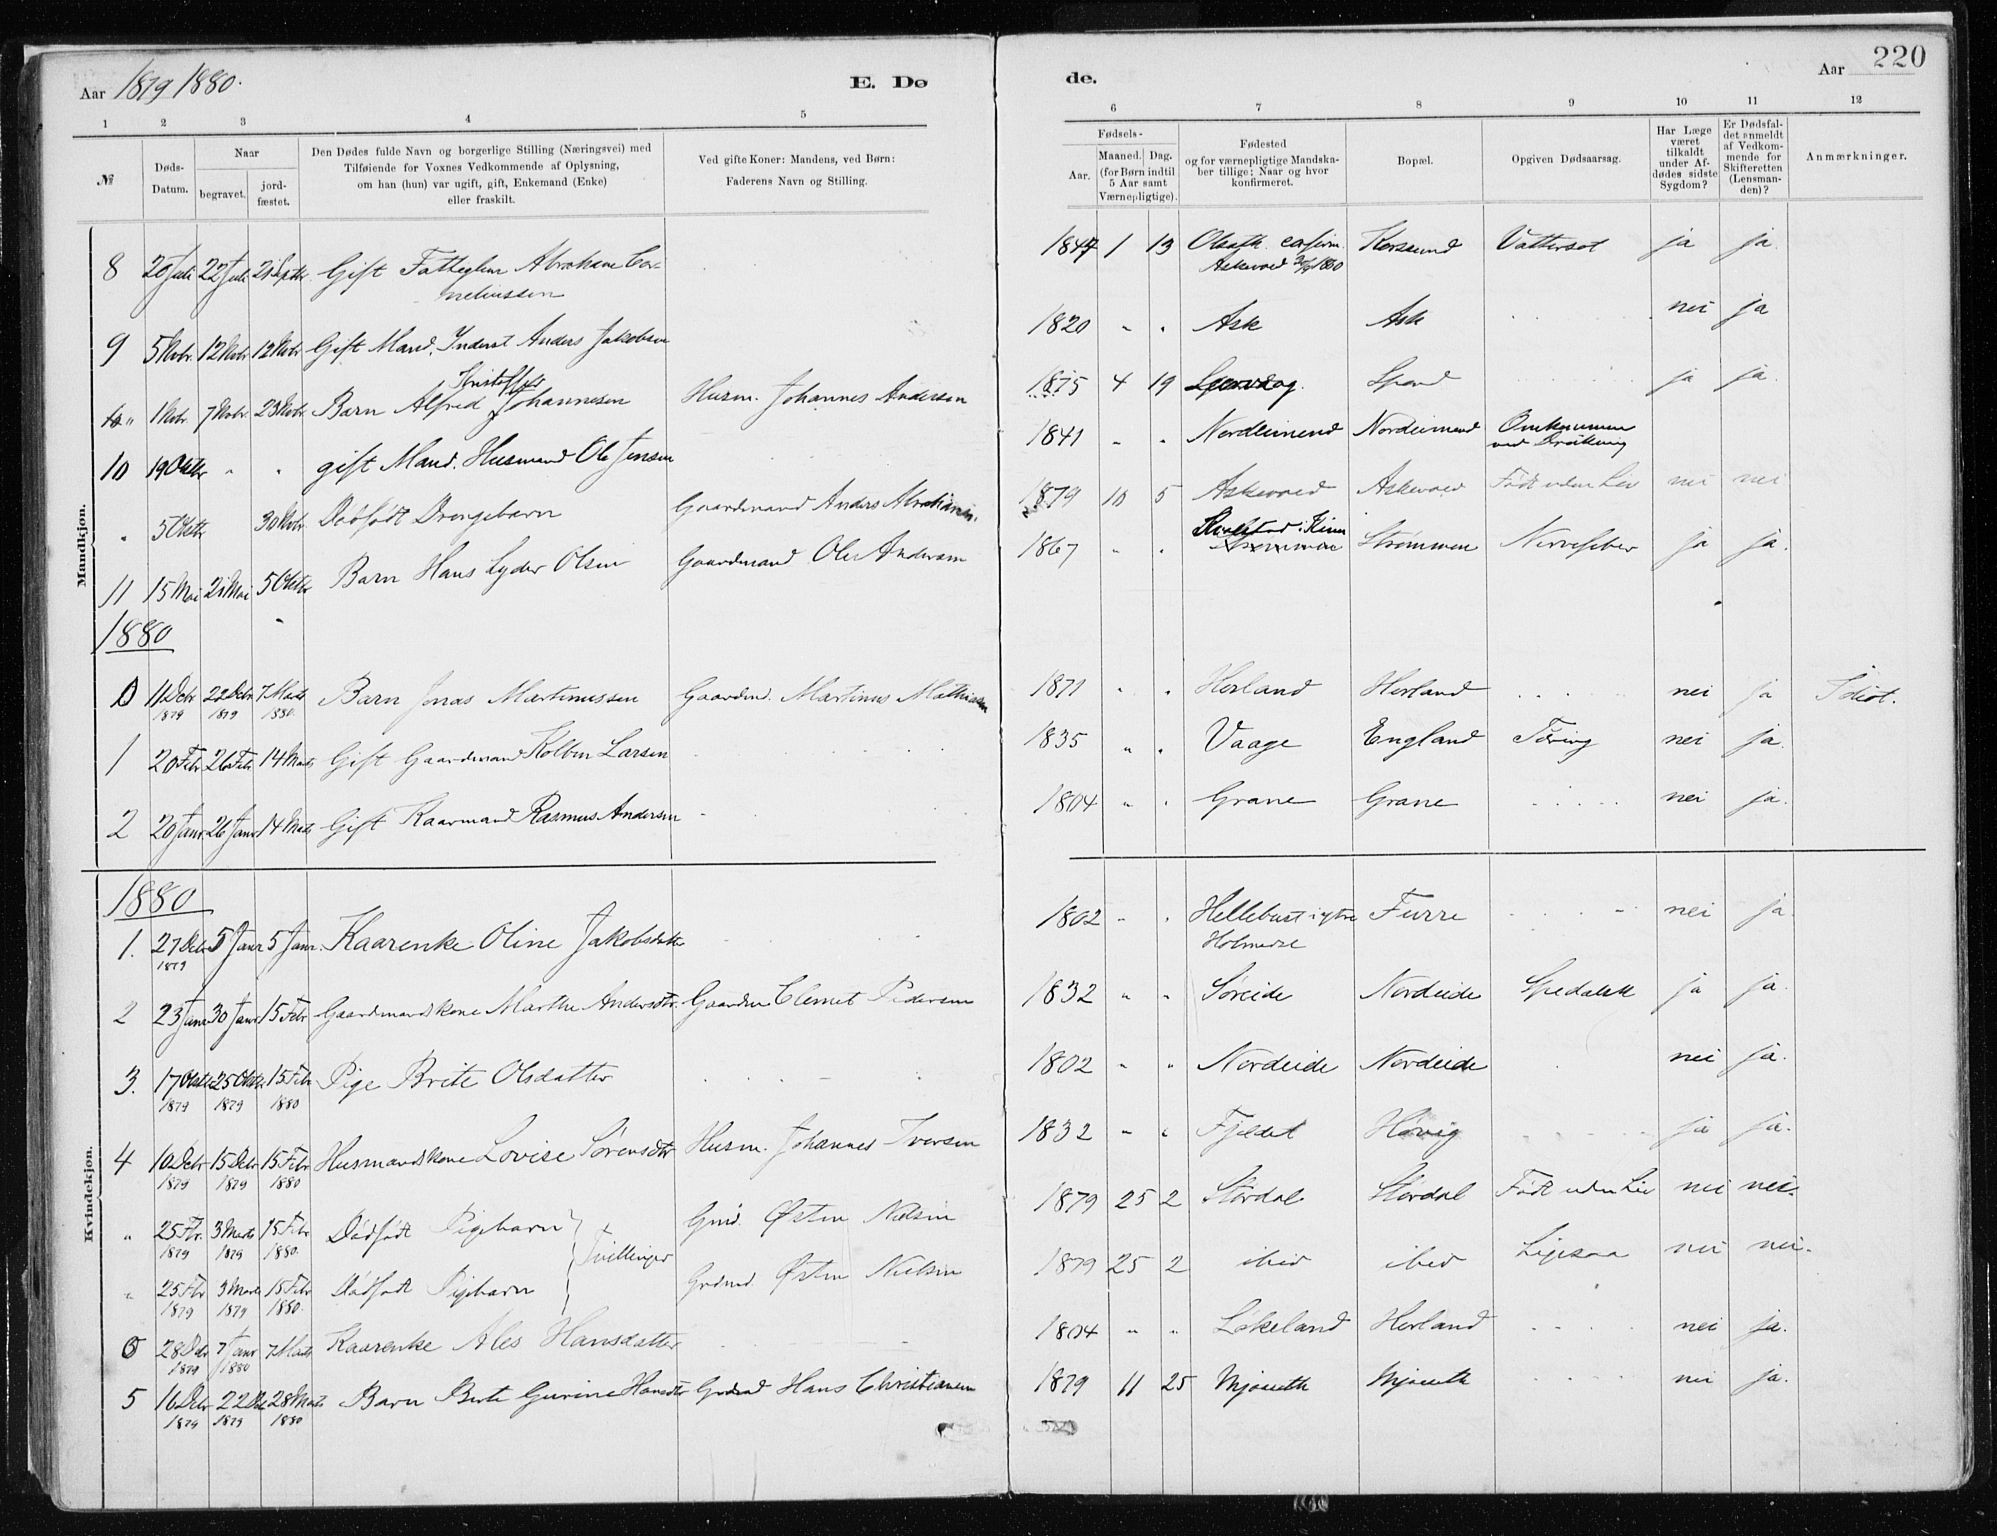 Aar 1879 1880.
E. Dø
de.
Aar 220
1 2 3 4 5 6 7 8 9 10 11 12
№
Døds-
Datum.
Naar
begravet.
jord-
fæstet.
Den Dødes fulde Navn og borgerlige Stilling (Næringsvei) med
Tilføiende for Voxnes Vedkommende af Oplysning,
om han (hun) var ugift, gift, Enkemand (Enke)
eller fraskilt.
Ved gifte Koner: Mandens, ved Børn:
Faderens Navn og Stilling.
Fødsels-
Aar.
Maaned. Dag.
(for Børn indtil
5 Aar samt
Værnepligtige).
Fødested
og for værnepligtige Mandska-
ber tillige: Naar og hvor
konfirmeret.
Bopæl.
Opgiven Dødsaarsag.
Har Læge
været
tilkaldt
under Af-
dødes sidste
Sygdom?
Er Dødsfal-
det anmeldt
af Vedkom-
mende for
Skifteretten
(Lensman-
den)?
Anmærkninger.
Mandkjøn.
8 20 Juli 22 Juli 21 Septbr. Gift Fattiglem Abraham Cor- 1847 1 13 Korssund Vattersot ja ja.
neliussen Askevold
9 5 Nvbr. 12 Nvbr 12 Nvbr Gift Mand. Inderst Anders Jakobsen 1820 " " Ask Ask nei ja
Kristoffer
" 1 Nvbr 7 Nvbr. 23 Nvbr Barn Alfred Johannesen Husm. Johannes Andersen 1875 4 19 ja ja.
10 19 Oktbr " " gift Mand. Husmand Ole Jensen 1841 " " Nordeimend Nordeimend Omkommen
ved Drukning
" 5 Oktbr 30 Nvbr. Dødfødt Drengebarn Gaardmand Anders 1879 10 5 Askevold Askevold Født uden Liv nei nei
11 15 Mai 21 Mai 5 Oktbr Barn Hans Lyder Olsen Gaardmand Ole Andersen 1867 " " Strømmen Strømmen Nervefeber ja ja.
1880
11 Debr 22 Debr 7 Marts Barn Jonas Martinussen Gaardmd. Martinus Mathissen 1871 " " Herland Herland nei ja Idiot.
1879 1879 1880.
1 20 Febr 26 Febr 14 Marts Gift Gaardmand Kolben Larsen 1835 " " Vaage England Tæring nei ja.
2 20 Janr. 26 Janr 14 Marts Gift Kaarmand Rasmus Andersen 1804 " " Grane Grane nei ja.
Kvindekjøn.
1880
1. 27 Debr 5 Janr 5 Janr. Kaarenke Oline Jakobsdatter 1802 " " Hellebust i ytre Furre nei ja.
1879 Holmedal
2 23 Janr 30 Janr 15 Febr Gaardmandskone Marthe Andersdtr. Gaardm Clemet Pedersen 1832 " " Søreide Nordeide Spedalsk ja ja.
3. 17 Oktbr 25 Oktbr 15 Febr Pige Brite Olsdatter 1802 " " Nordeide Nordeide nei ja.
1879 1879 1880
4 10 Debr 15 Debr 15 Febr Husmandskone Lovise Sørensdtr Husm. Johannes Iversen 1832 " " Fjeldet Høvig ja ja.
1879 1879 1880
" 25 Fbr. 3 Marts 15 Febr Dødfødt Pigebarn Gmd. Østen Nielsen 1879 25 2 Stordal Stordal Født uden Liv nei nei.
1879 1879 1880. Tvillinger
" 25 Fbr 3 Marts 15 Febr Dødfødt Pigebarn Grdmd. Østen Nielsen 1879 25 2 ibid ibid Ligesaa nei nei.
1879 1879 1880.
28 Debr 7 Janr 7 Marts Kaarenke Ales Hansdatter 1804 " " Løkeland Herland nei ja.
1879 1880
5 16 Debr 22 Debr 28 Marts Barn Berte Gurine Hansdtr Grdmd Hans Christiansen 1879 11 25 nei ja.
1879 1879 1880